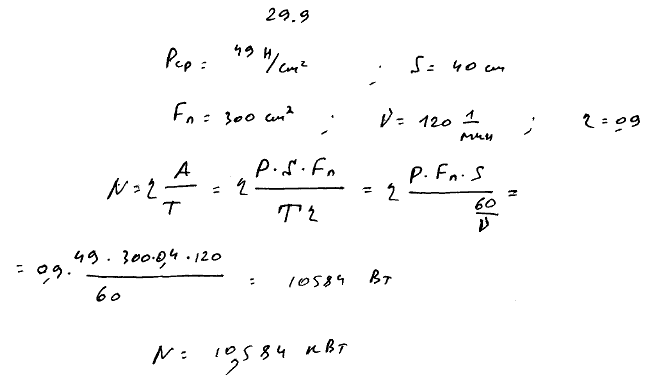 29.9
Pср = 49 Н/см² ; S = 40 см
Fп = 300 см² ; ν = 120 1/мин ; η = 0,9
N = η A/T = η P·S·Fп/Tη = η P·Fп·S/(60/ν) =
= 0,9 · 49 · 300·0,4 · 120/60 = 10584 Вт
N = 10,584 кВт